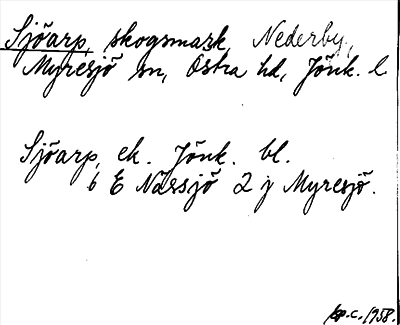 Sjöarp, skogsmark, Nederby,
Myresjö sn, Östra hd, Jönk. l
Sjöarp, ek. Jönk. bl.
6 E Nässjö 2 j Myresjö.
sp.c. 1958.